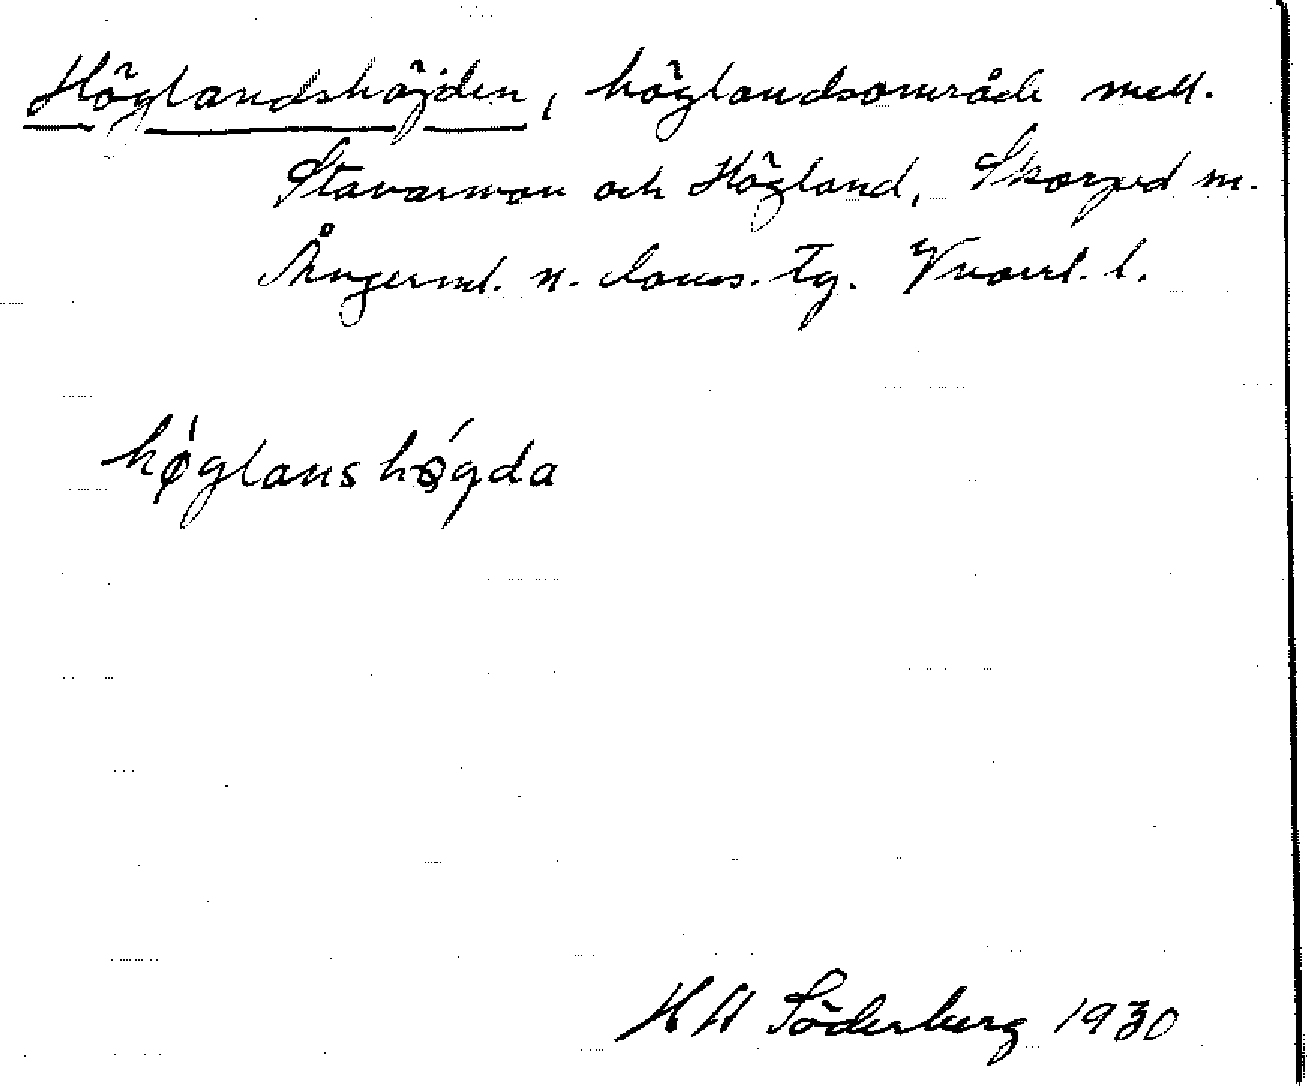 Höglandshöjden, höglandsområde mell.
Stavarmon och Högland, Skorped sn.
Ångerml. n. doms. tg. Vnorrl. l.
hø̀glans hǿgda
H W Söderberg 1930